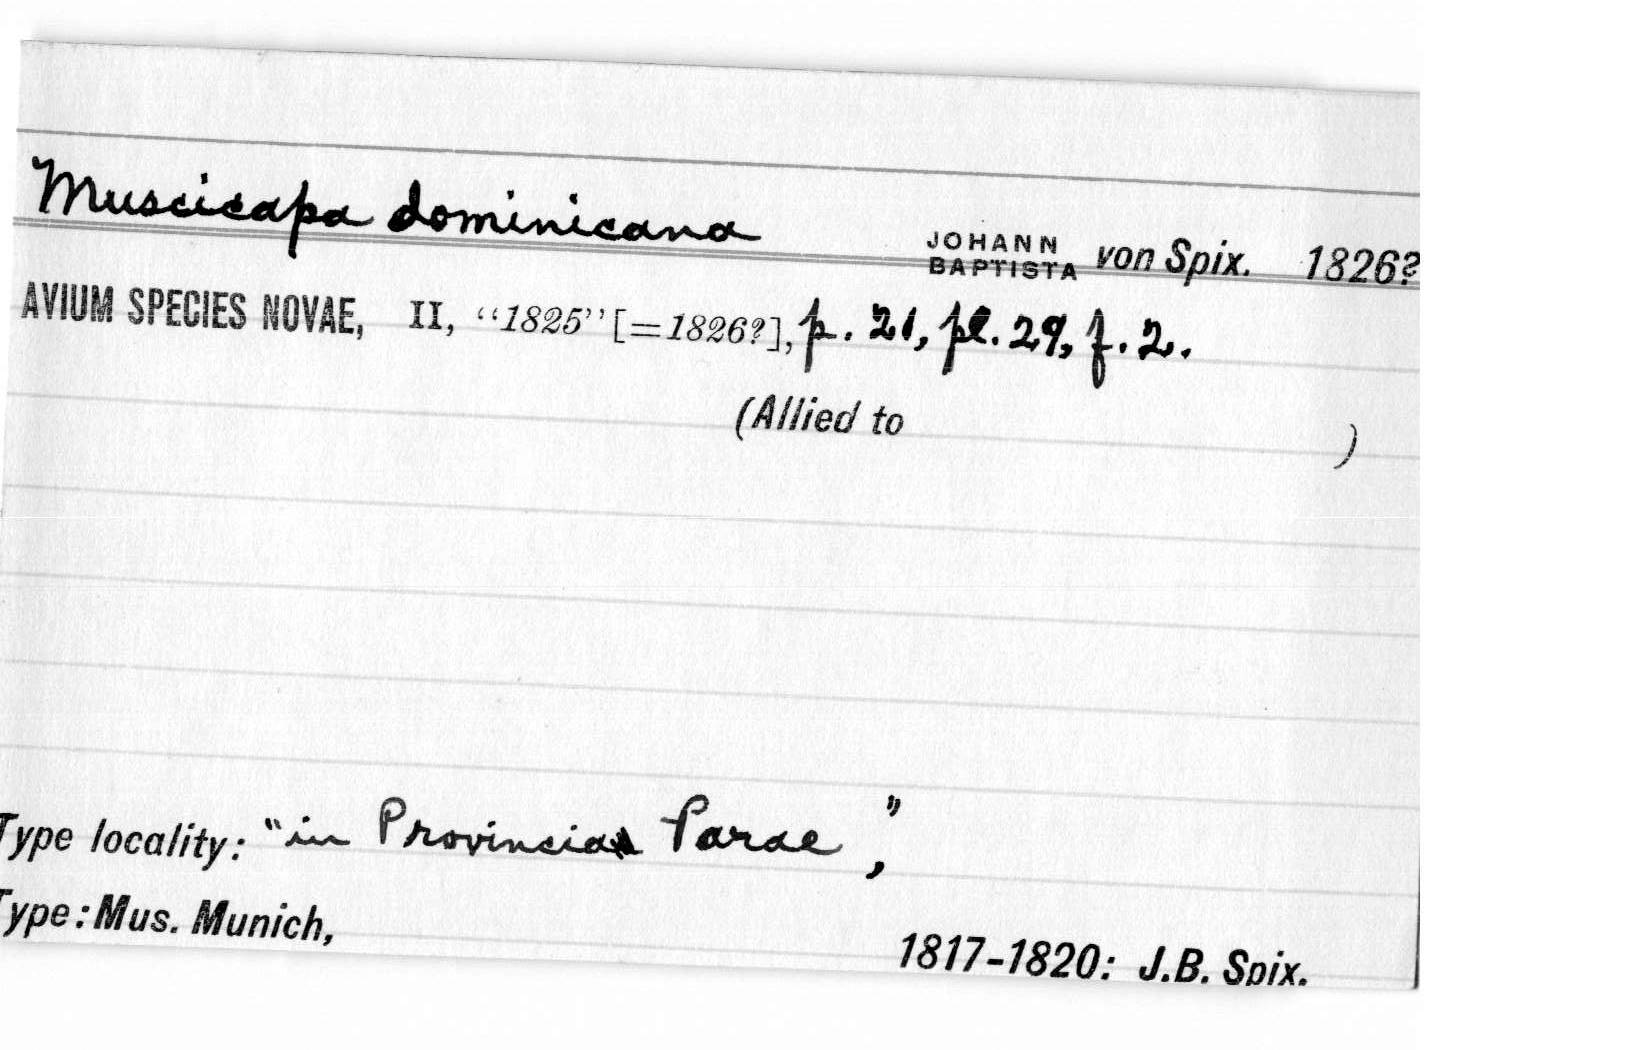 Muscicapa dominicana JOHANN BAPTISTA von Spix. 1826?
AVIUM SPECIES NOVAE, II, “1825” [=1826?], p. 21, pl. 29, f. 2.
(Allied to )
Type locality: "in Provincia Parae,"
Type: Mus. Munich, 1817-1820: J.B. Spix.